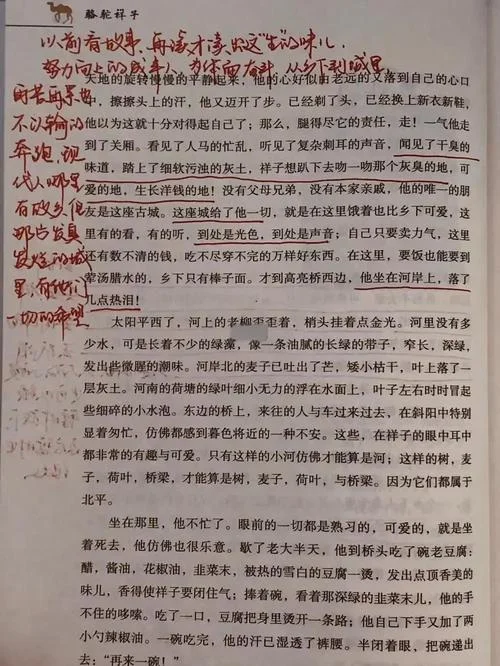 骆驼祥子
以前看故事,再读才读出这"生"的味儿
努力向上的成年人,为体面奋斗,从乡下到城里
天地的旋转慢慢的平静起来,他的心好似由老远的又落到自己的心口
中,擦擦头上的汗,他又迈开了步。已经剃了头,已经换上新衣新鞋,
他以为这就十分对得起自己了;那么,腿得尽它的责任,走!一气他走
到了关厢。看见了人马的忙乱,听见了复杂刺耳的声音,闻见了干臭的
味道,踏上了细软污浊的灰土,祥子想趴下去吻一吻那个灰臭的地,可
爱的地,生长洋钱的地!没有父母兄弟,没有本家亲戚,他的唯一的朋
友是这座古城。这座城给了他一切,就是在这里饿着也比乡下可爱,这
里有的看,有的听,到处是光色,到处是声音;自己只要卖力气,这里
还有数不清的钱,吃不尽穿不完的万样好东西。在这里,要饭也能要到
荤汤腊水的,乡下只有棒子面。才到高亮桥西边,他坐在河岸上,落了
几点热泪!
不以输的
奔跑,现
代人哪里
有故乡,他
一切的希望
太阳平西了,河上的老柳歪歪着,梢头挂着点金光。河里没有多
少水,可是长着不少的绿藻,像一条油腻的长绿的带子,窄长,深绿,
发出些微腥的潮味。河岸北的麦子已吐出了芒,矮小枯干,叶上落了一
层灰土。河南的荷塘的绿叶细小无力的浮在水面上,叶子左右时时冒起
些细碎的小水泡。东边的桥上,来往的人与车过来过去,在斜阳中特别
显着匆忙,仿佛都感到暮色将近的一种不安。这些,在祥子的眼中耳中
都非常的有趣与可爱。只有这样的小河仿佛才能算是河;这样的树,麦
子,荷叶,桥梁,才能算是树,麦子,荷叶,与桥梁。因为它们都属于
北平。
坐在那里,他不忙了。眼前的一切都是熟习的,可爱的,就是坐
着死去,他仿佛也很乐意。歇了老大半天,他到桥头吃了碗老豆腐:
醋,酱油,花椒油,韭菜末,被热的雪白的豆腐一烫,发出点顶香美的
味儿,香得使祥子要闭住气;捧着碗,看着那深绿的韭菜末儿,他的手
不住的哆嗦。吃了一口,豆腐把身里烫开一条路;他自己下手又加了两
小勺辣椒油。一碗吃完,他的汗已湿透了裤腰。半闭着眼,把碗递出
去:"再来一碗!"